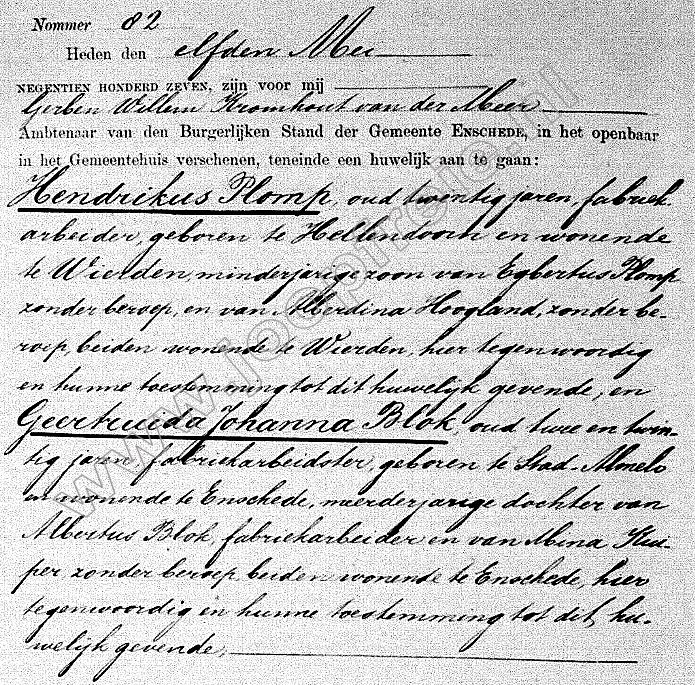 Nommer 82
Heden den elfden Mei
NEGENTIEN HONDERD ZEVEN, zijn voor mij
Gerben Willem Kromhout van der Meer
Ambtenaar van den Burgerlijken Stand der Gemeente ENSCHEDE, in het openbaar
in het Gemeentehuis verschenen, teneinde een huwelijk aan te gaan:
Hendrikus Plomp, oud twintig jaren, fabriek-
arbeider, geboren te Hellendoorn en wonende
te Wierden, minderjarige zoon van Egbertus Plomp
zonder beroep, en van Alberdina Hoogland, zonder be-
roep, beiden wonende te Wierden, hier tegenwoordig
en hunne toestemming tot dit huwelijk gevende, en
Geertruida Johanna Blok, oud twee en twin-
tig jaren, fabriekarbeidster, geboren te Stad Almelo
en wonende te Enschede, meerderjarige dochter van
Albertus Blok, fabriekarbeider en van Mina Kui-
per, zonder beroep, beiden wonende te Enschede, hier
tegenwoordig en hunne toestemming tot dit hu-
welijk gevende,
www.joopmolo.nl